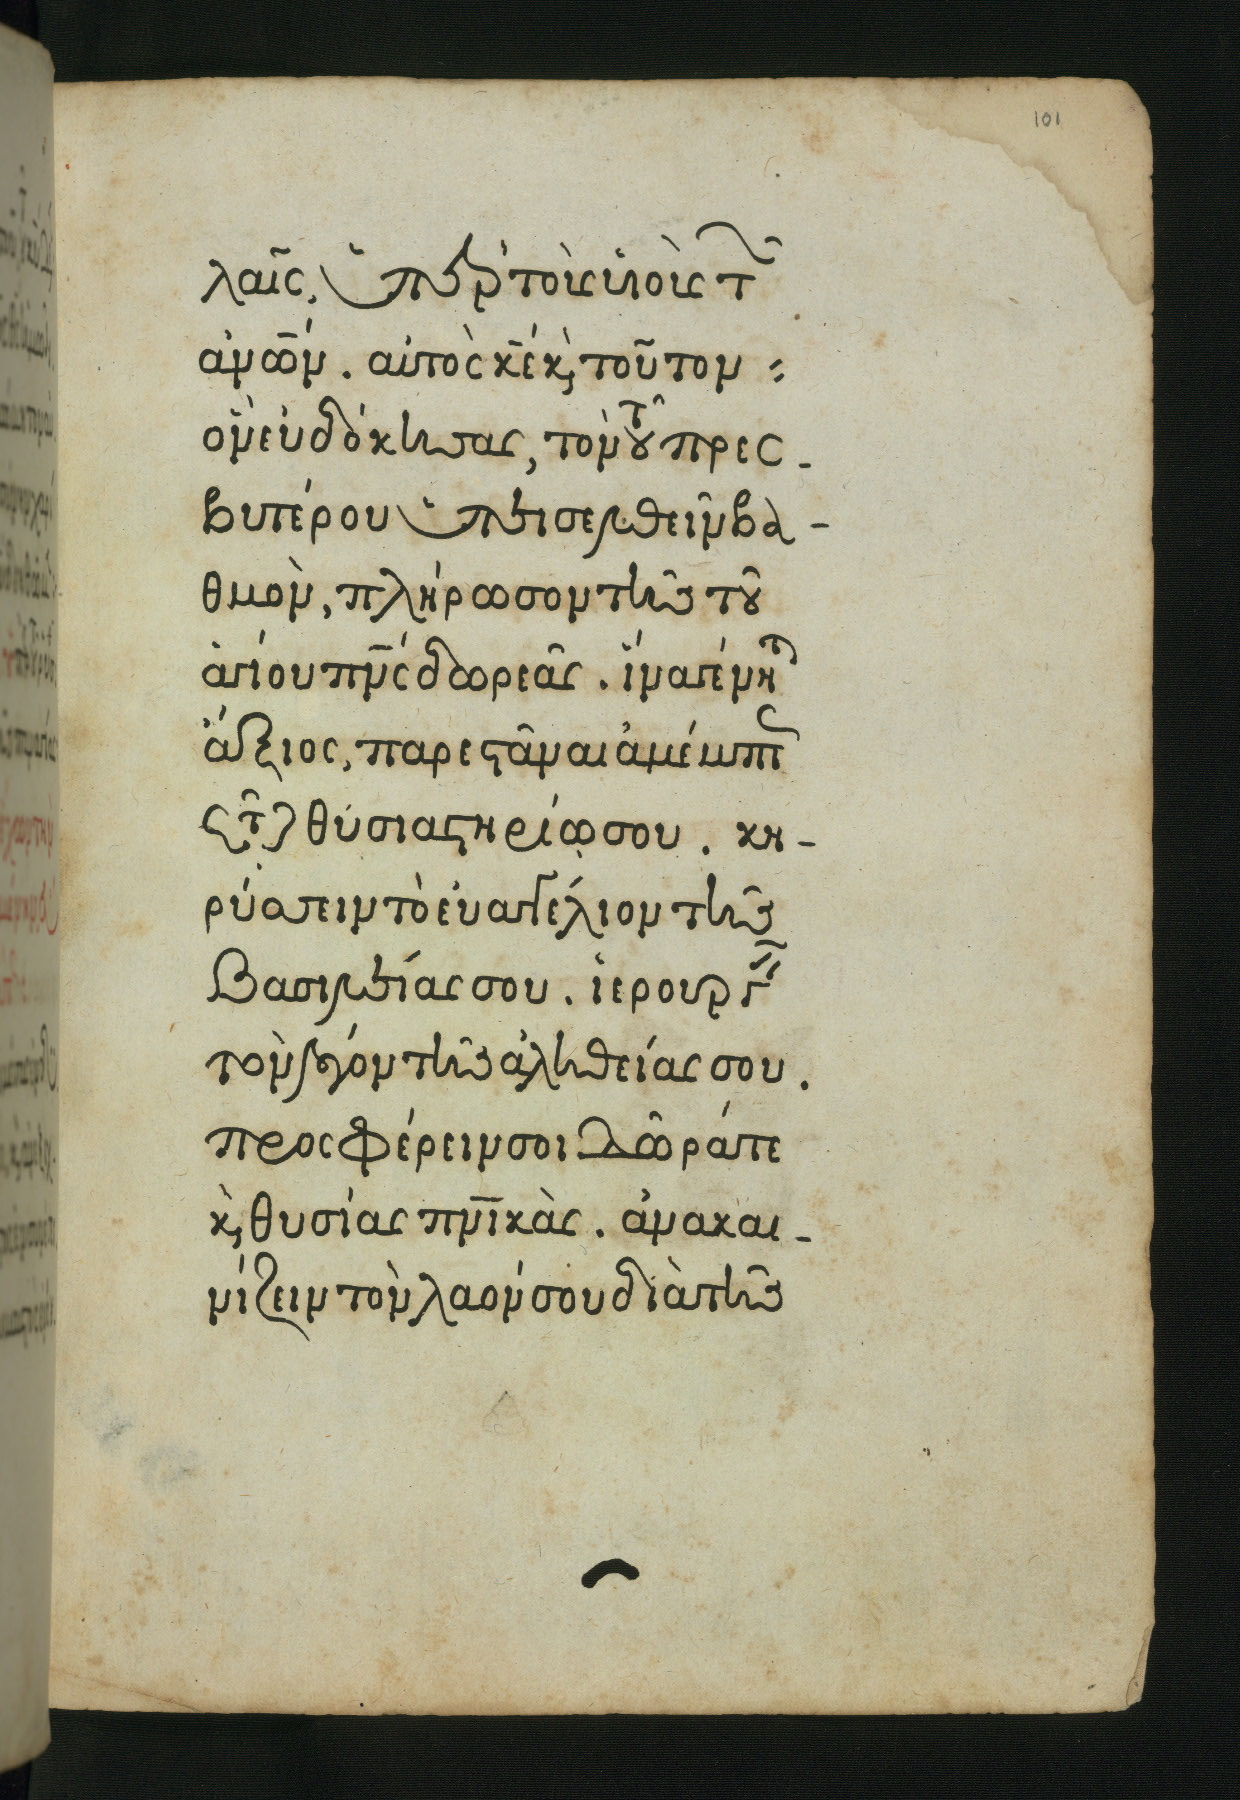 101
λαῖς, ὑπὲρ τοὺς υἱοὺς τ
ἀνῶν. αὐτὸς κέ κὶ τοῦτον
ὃν εὐδόκησας, τὸν τοῦ πρεσ-
βυτέρου ὑπεισελθεῖν βα-
θμὸν, πλήρωσον τῆς τοῦ
ἁγίου πνς́ δωρεᾶς. ἵνα γένητ
ἄξιος, παρεστάναι ἀμέμπτ
ς τῶ θυσιαστηρίῳ σου. κη-
ρύσσειν τὸ εὐαγγέλιον τῆς
βασιλείας σου. ἱερουργεῖν
τὸν λόγον τῆς ἀληθείας σου.
προσφέρειν σοι δῶρά τε
κὶ θυσίας πνικὰς. ἀνακαι-
νίζειν τὸν λαόν σου διὰ τῆς